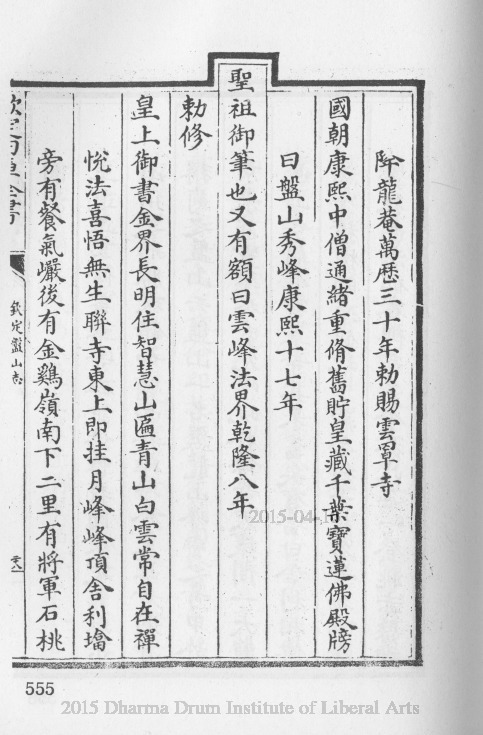 降龍菴萬歷三十年勅賜雲罩寺
國朝康熙中僧通緒重脩舊貯皇藏千葉寶蓮佛殿牓
曰盤山秀峰康熙十七年
聖祖御筆也又有額曰雲峰法界乾隆八年
勅修
皇上御書金界長明住智慧山匾青山白雲常自在禪
悅法喜悟無生聯寺東上即挂月峰峰頂舍利塔
旁有餐氣巗後有金鷄嶺南下二里有將軍石桃
欽定四庫全書
欽定盤山志
555
2015-04-
2015 Dharma Drum Institute of Liberal Arts